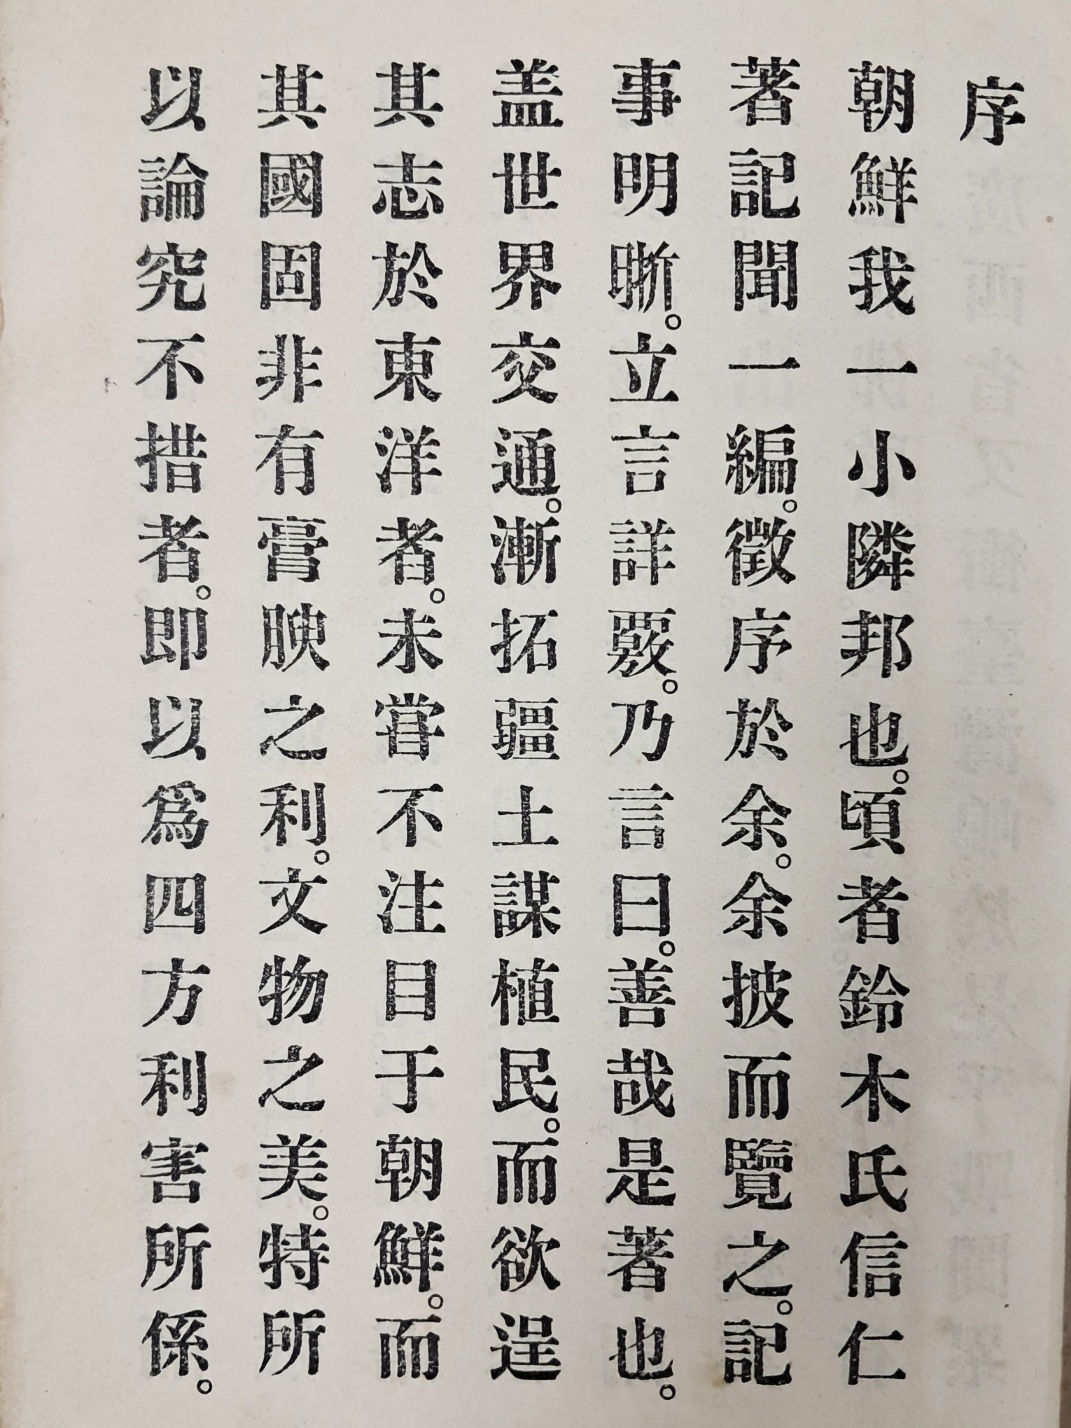 序
朝鮮我一小隣邦也。頃者鈴木氏信仁
著記聞一編。徵序於余。余披而覽之。記
事明晣。立言詳覈。乃言曰。善哉是著也。
盖世界交通。漸拓疆土謀植民。而欲逞
其志於東洋者。未嘗不注目于朝鮮。而
其國固非有膏腴之利。文物之美。特所
以論究不措者。即以爲四方利害所係。